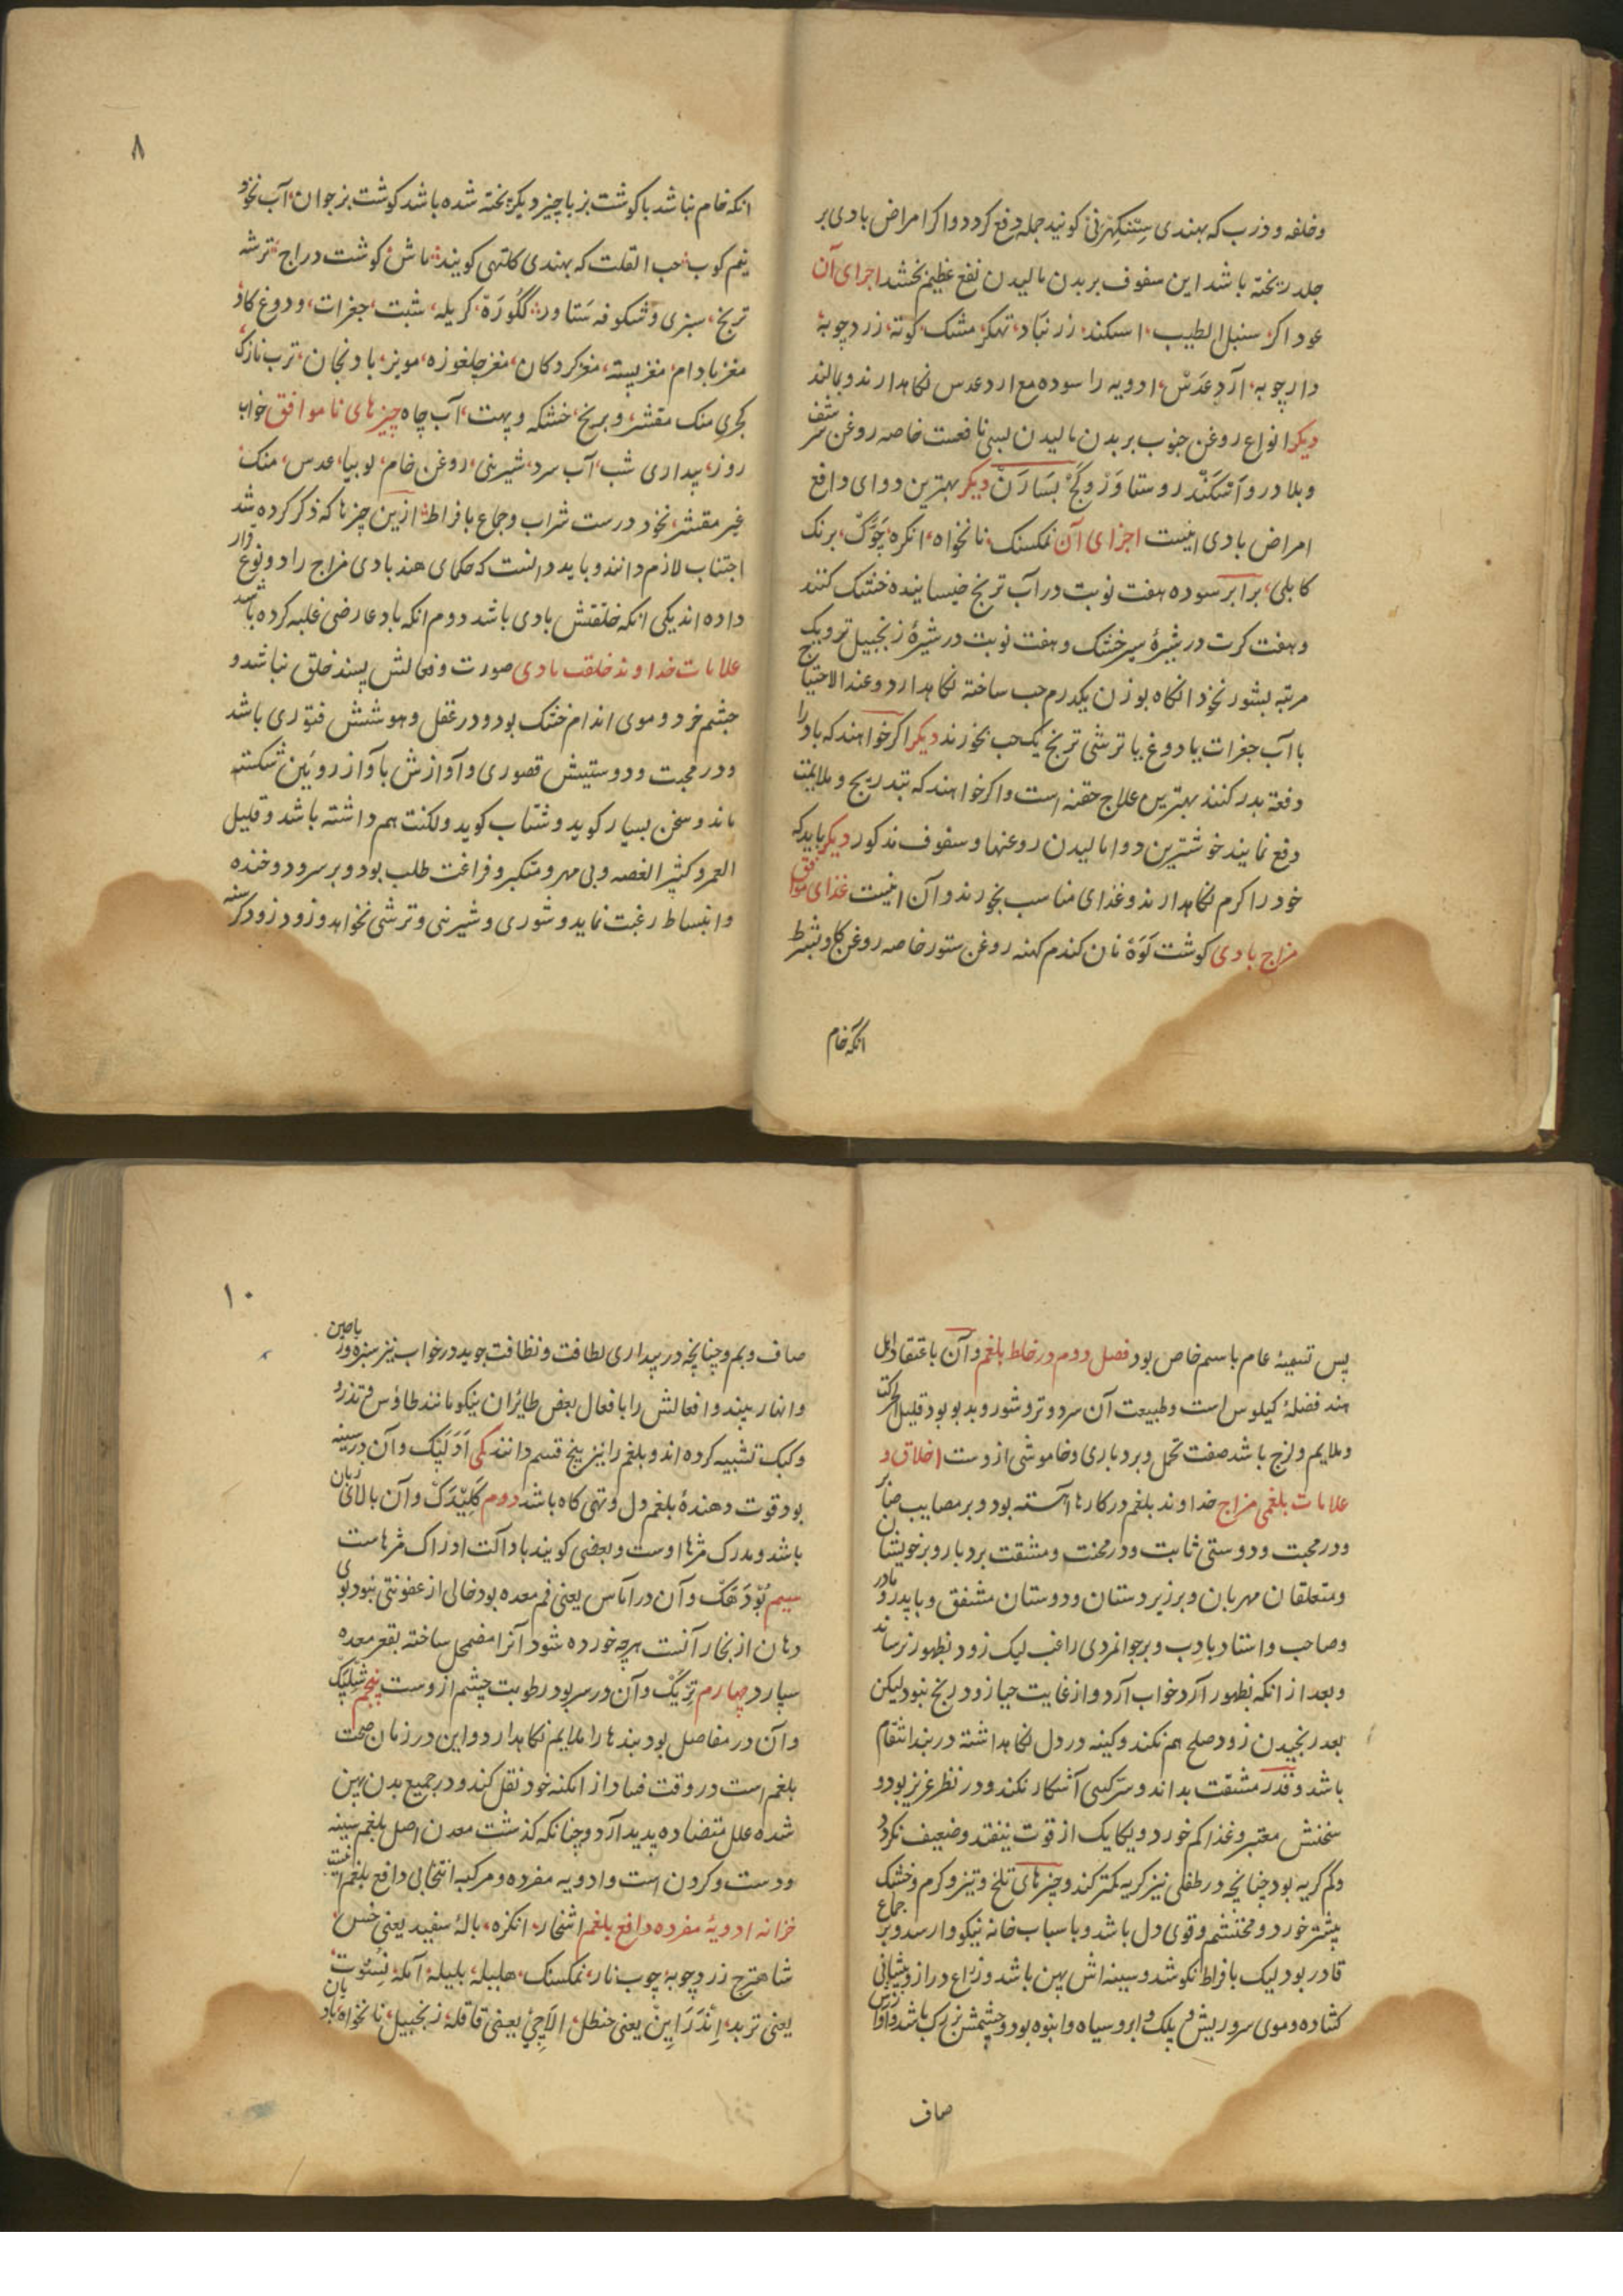 وخلفه و ذرب که بهندی سنتکهرنی کویند جمله دفع کردد و اکر امراض بادی بر
جلد ریخته باشد این سفوف بر بدن مالیدن نفع عظیم بخشد اجزای آن
عود اکر، سنبل الطیب، اسکند، زرنباد، تهکر، مشک، کوته، زردچوبه
دارچوبه، آرد عدس، ادویه را سوده مع ارد عدس نکاهدارند و بمالند
دیکر انواع روغن جنوب بر بدن مالیدن بسی نافعست خاصه روغن
وبلادر و آسکند و ستاور و کج بسارن دیکر بهترین دوای دافع
امراض بادی اینست اجزای آن نمکسنک، نانخواه، انکزه، چوک، برنک
کابلی، برابر سوده هفت نوبت در آب ترنج خیسانیده خشک کنند
و هفت کرت در شیرهٔ سیر خشک و هفت نوبت در شیرهٔ زنجبیل تر و یک
مرتبه بشور نخود انکاه بوزن یکدرم حب ساخته نکاهدارد و عند الاحتیاج
با آب جغرات یا دوغ یا ترشی ترنج یک حب بخورند دیکر اکر خواهند که باد را
دفعة بدر کنند بهترین علاج حقنه است و اکر خواهند که بتدریج و ملایمت
دفع نمایند خوشترین دوا مالیدن روغنها و سفوف مذکور دیکر باید که
خود را کرم نکاهدارند و غذای مناسب بخورند و آن اینست غذای موافق
مزاج بادی کوشت لوه نان کندم کهنه روغن ستور خاصه روغن کاو بشرط
انکه خام
۸
انکه خام نباشد با کوشت بز با چیز دیکر پخته شده باشد کوشت بز جوان، آب نخود
نیم کوب، حب القلت که بهندی کلتهی کویند، ماش، کوشت دراج، ترشه
ترنج، سبزی و شکوفه ستاور، ککوره، کریله، شبت، جغرات، و دوغ کاو
مغز بادام، مغز پسته، مغز کردکان، مغز چلغوزه، مویز، بادنجان، ترب نازک
کجری منک مقشر، و برنج، خشکه و پهت، آب چاه چیزهای ناموافق خواب
روز، بیداری شب، آب سرد، شیرینی، روغن خام، لوبیا، عدس، منک
غیر مقشر، نخود درست شراب و جماع بافراط، ازین چیزها که ذکر کرده شد
اجتناب لازم دانند و باید دانست که حکمای هند بادی مزاج را دو نوع قرار
داده اند یکی انکه خلقتش بادی باشد دوم انکه باد عارضی غلبه کرده باشد
علامات خداوند خلقت بادی صورت و فعالش پسند خلق نباشد و
چشم خرد و موی اندام خشک بود و در عقل و هوشش فتوری باشد
و در محبت و دوستیش قصوری و آوازش باواز روئین شکسته
ماند و سخن بسیار کوید و شتاب کوید و لکنت هم داشته باشد و قلیل
العمر و کثیر الغصه و بی مهر و متکبر و فراغت طلب بود و بر سرود و خنده
و انبساط رغبت نماید و شوری و شیرنی و ترشی نخواهد و زود زود کرسنه
پس تسمیهٔ عام باسم خاص بود فصل دوم در خلط بلغم و آن باعتقاد اهل
هند فضلهٔ کیلوس است و طبیعت آن سرد و تر و شور و بدبو بود قلیل الحرکت
و ملایم و لزج باشد صفت تحمل و بردباری و خاموشی ازوست اخلاق و
علامات بلغمی مزاج خداوند بلغم در کارها آهسته بود و بر مصایب صابر
و در محبت و دوستی ثابت و در محنت و مشقت بردبار و بر خویشان
و متعلقان مهربان و بر زیردستان و دوستان مشفق و با پدر و مادر
و صاحب و استاد بادب و بر جوانمردی راغب لیک زود بظهور نرساند
و بعد از انکه بظهور آرد خواب آرد و از غایت حیا زود رنج نبود لیکن
بعد رنجیدن زود صلح هم نکند و کینه در دل نکاهداشته در بند انتقام
باشد و قدر مشقت بداند و سر کسی آشکار نکند و در نظر عزیز بود و
سخنش معتبر و غذا کم خورد و یکایک از قوت نیفتد و ضعیف نکردد
و کم کریه بود چنانچه در طفلی نیز کریه کمتر کند و چیزهای تلخ و تیز و کرم و خشک
بیشتر خورد و محتشم و قوی دل باشد و باسباب خانه نیکو وارسد و بر جماع
قادر بود لیک بافراط نکوشد و سینه اش پهن باشد و ذراع دراز و پیشانی
کشاده و موی سر و ریش و پلک و ابرو سیاه و انبوه بود و چشمش بزرک باشد و اوازش
صاف
۱۰
صاف و بم و چنانچه در بیداری لطافت و نظافت جوید در خواب نیز سبزه و ریاحین
و انهار بیند و افعالش را بافعال بعض طائران نیکو مانند طاؤس و تذرو
و کبک تشبیه کرده اند و بلغم را نیز پنج قسم دانند یکی ادلپنک و آن در سینه
بود قوت دهندهٔ بلغم دل و تهی کاه باشد دوم کلیدک و آن بالای زبان
باشد و مدرک مزها اوست و بعضی کویند باد آلت ادراک مزهاست
سیم بودهک و آن در اماس یعنی فم معده بود خالی از عفونتی نبود بوی
دهان از بخار آنست هرچه خورده شود آنرا مضمحل ساخته بقعر معده
سپارد چهارم تریک و آن در سر بود رطوبت چشم ازوست پنجم شلیپک
و آن در مفاصل بود بندها را ملایم نکاهدارد و این در زمان صحت
بلغم است در وقت فساد از امکنه خود نقل کند و در جمیع بدن پهن
شده علل متضاده پدید آرد و چنانکه کذشت معدن اصل بلغم سینه
و دست و کردن است و ادویه مفرده و مرکبه انتخابی دافع بلغم اینست
خزانه ادویهٔ مفرده دافع بلغم اشخار، انکزه، بالهٔ سفید یعنی خس،
شاهترج زردچوبه چوب نار، نمکسنک، هلیله، بلیله، آمله، نسوت،
یعنی تربد، اندراین یعنی حنظل، الاچی یعنی قاقله، زنجبیل، نانخواه، بادیان